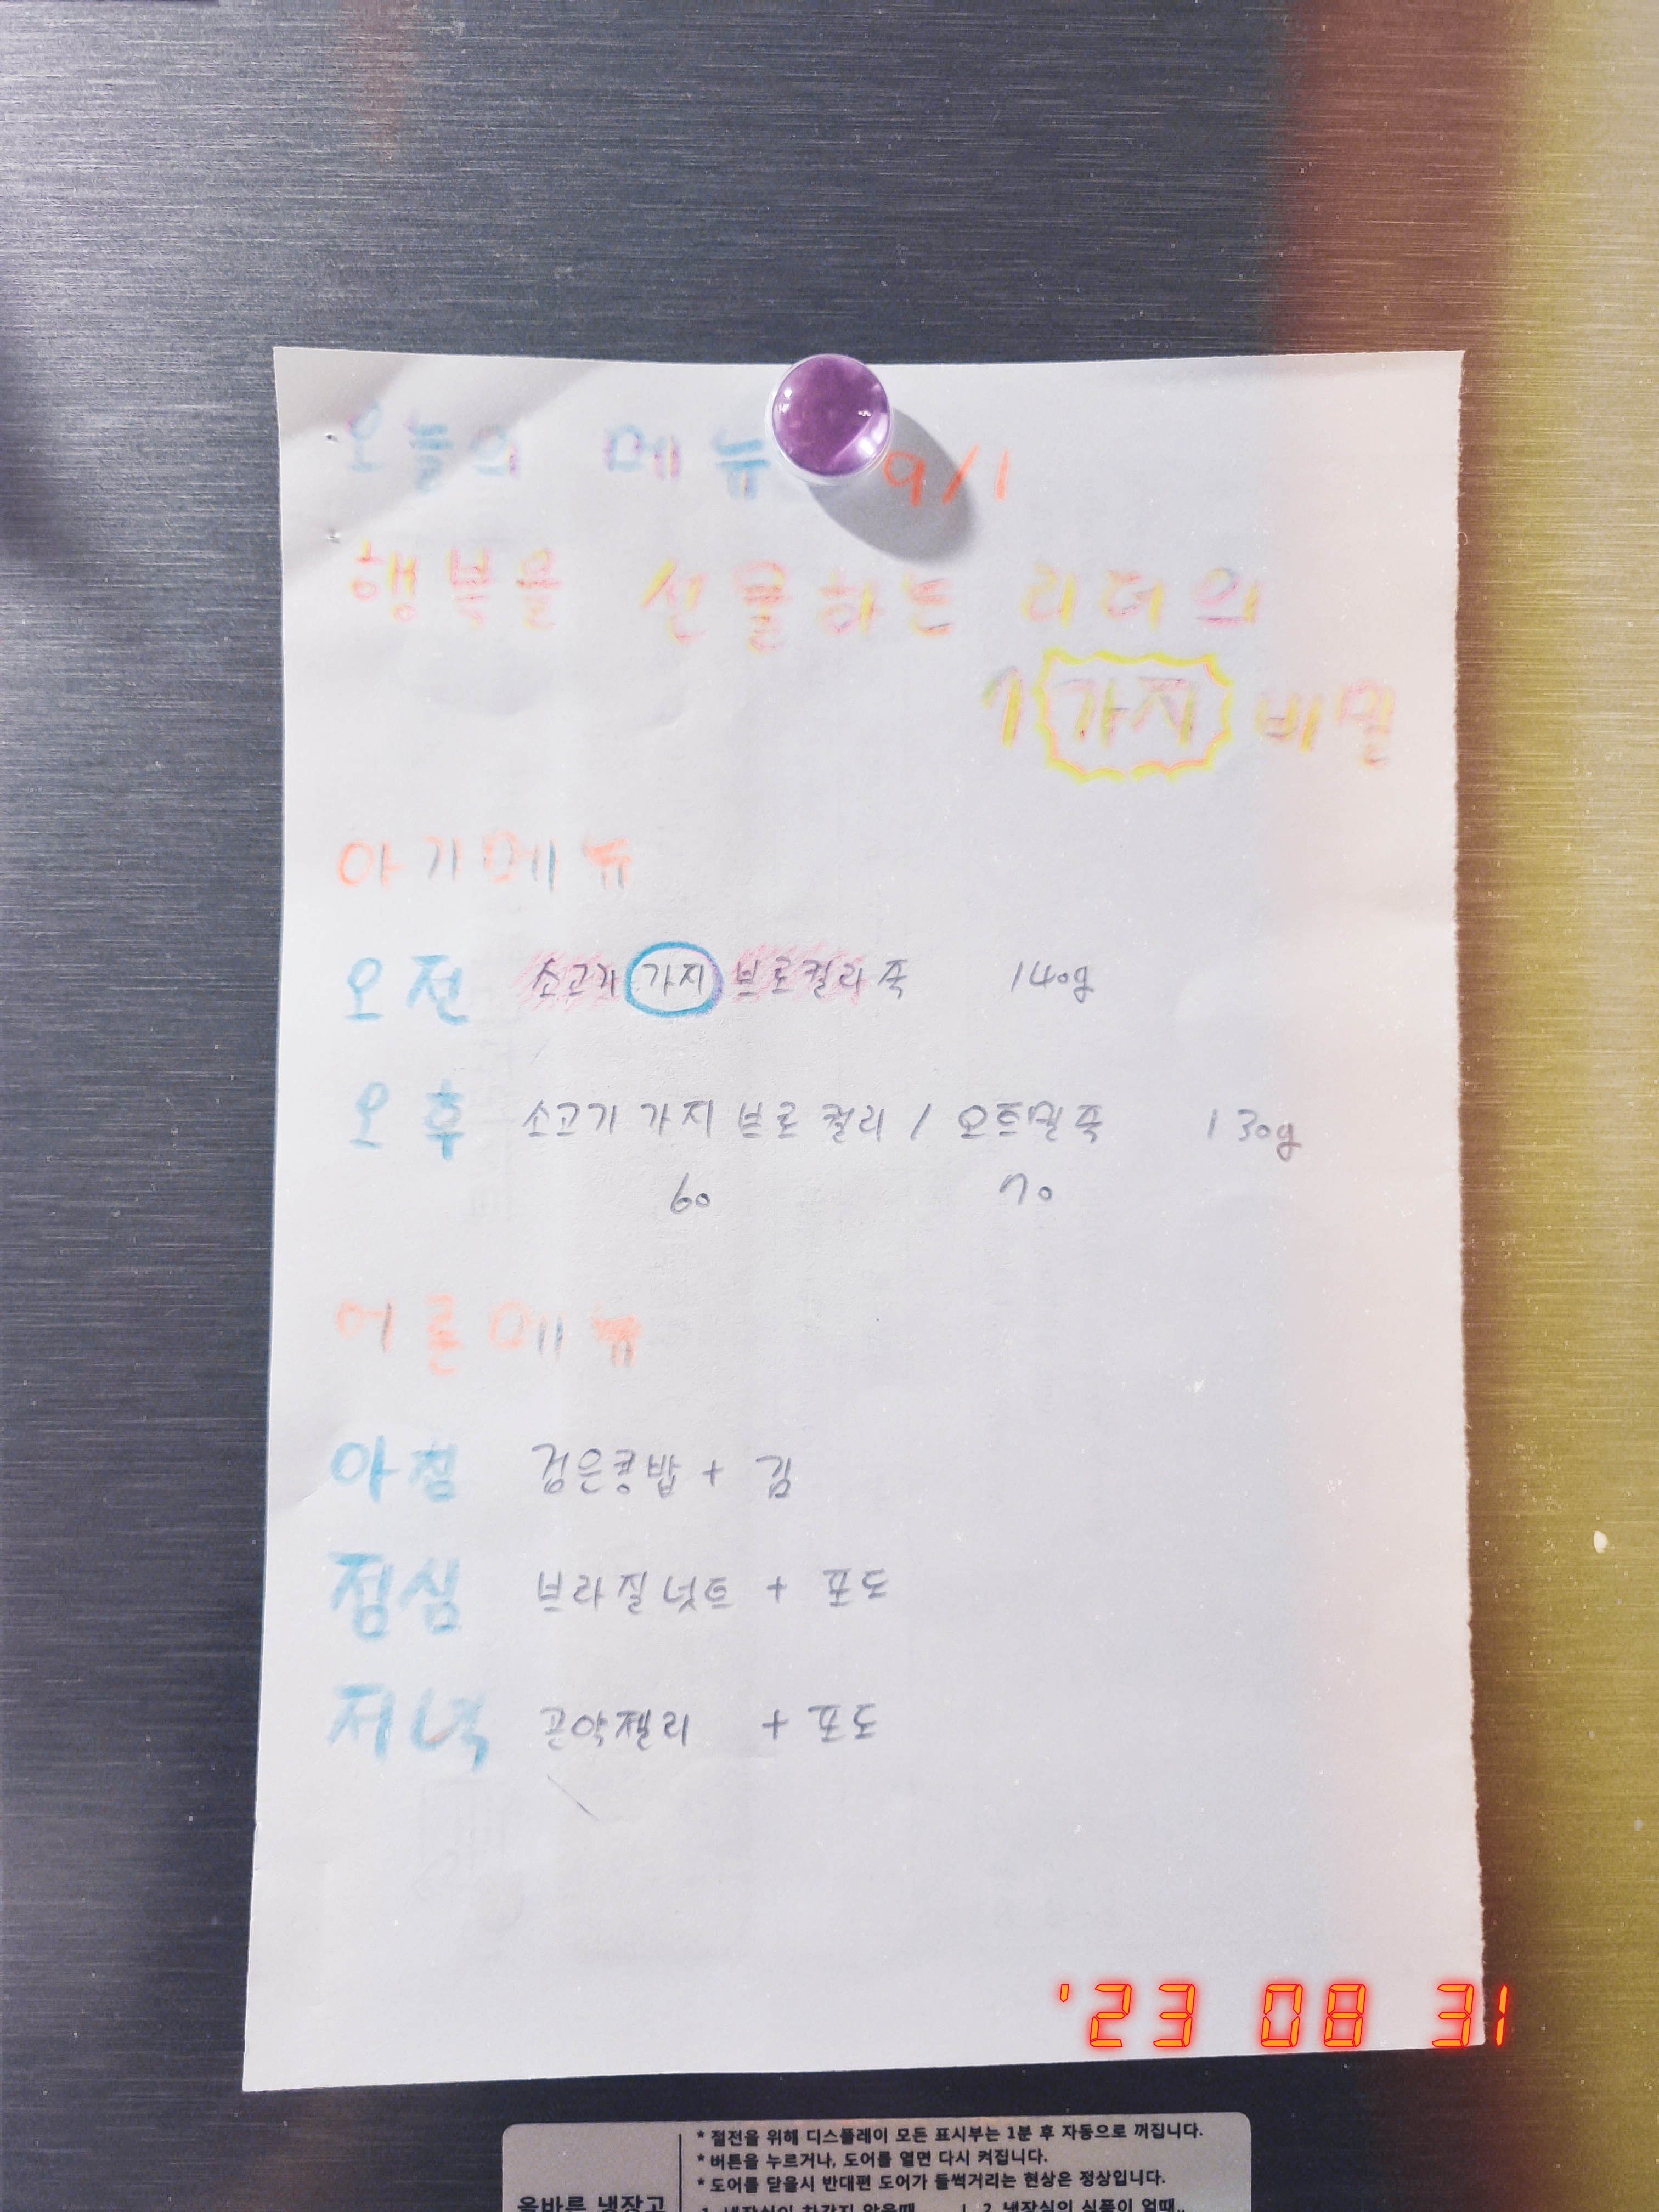 오늘의 메뉴 9/1
행복을 선물하는 리더의
1가지 비밀
아기메뉴
오전 소고기 가지 브로컬리죽 140g
오후 소고기 가지 브로컬리 / 오트밀죽 130g
60 70
어른메뉴
아침 검은콩밥 + 김
점심 브라질넛트 + 포도
저녁 곤약젤리 + 포도
'23 08 31
* 절전을 위해 디스플레이 모든 표시부는 1분 후 자동으로 꺼집니다.
* 버튼을 누르거나, 도어를 열면 다시 켜집니다.
* 도어를 닫을시 반대편 도어가 들썩거리는 현상은 정상입니다.
올바른 냉장고
1. 냉장실이 차갑지 않을때 2. 냉장실의 식품이 얼때..